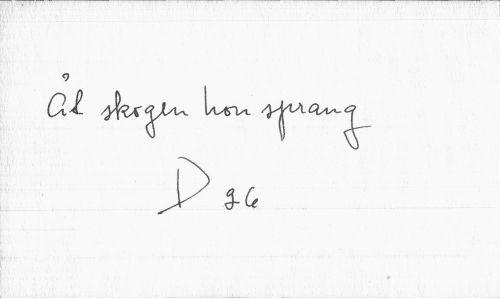 Åt skogen hon sprang
D 96